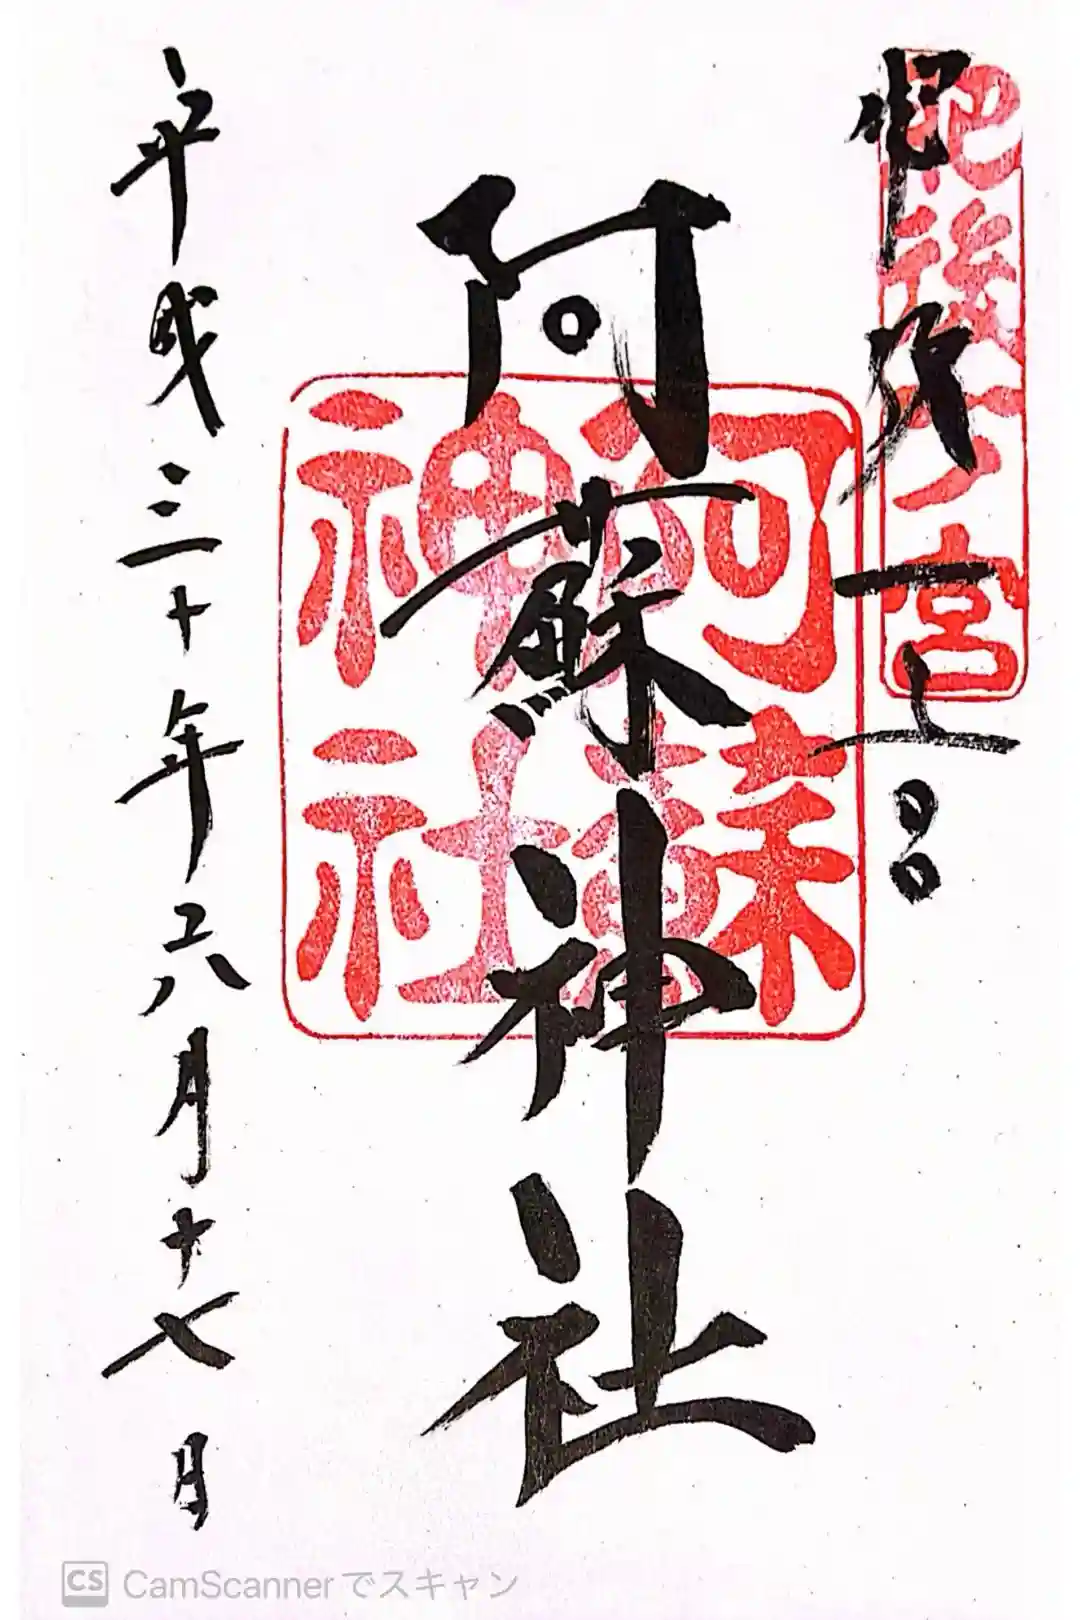 肥後一之宮
肥後一之宮
阿蘇神社
阿蘇神社
平成三十年六月十七日
CS CamScannerでスキャン